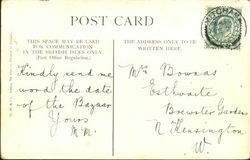 POST CARD
THIS SPACE MAY BE USED
FOR COMMUNICATION
IN THE BRITISH ISLES ONLY.
(Post Office Regulation.)
THE ADDRESS ONLY TO BE
WRITTEN HERE.
Kindly send me
word the date
of the Bazaar
Yours
Mrs Bowras
Esthwaite
Brewster Gardens
N Kensington
W